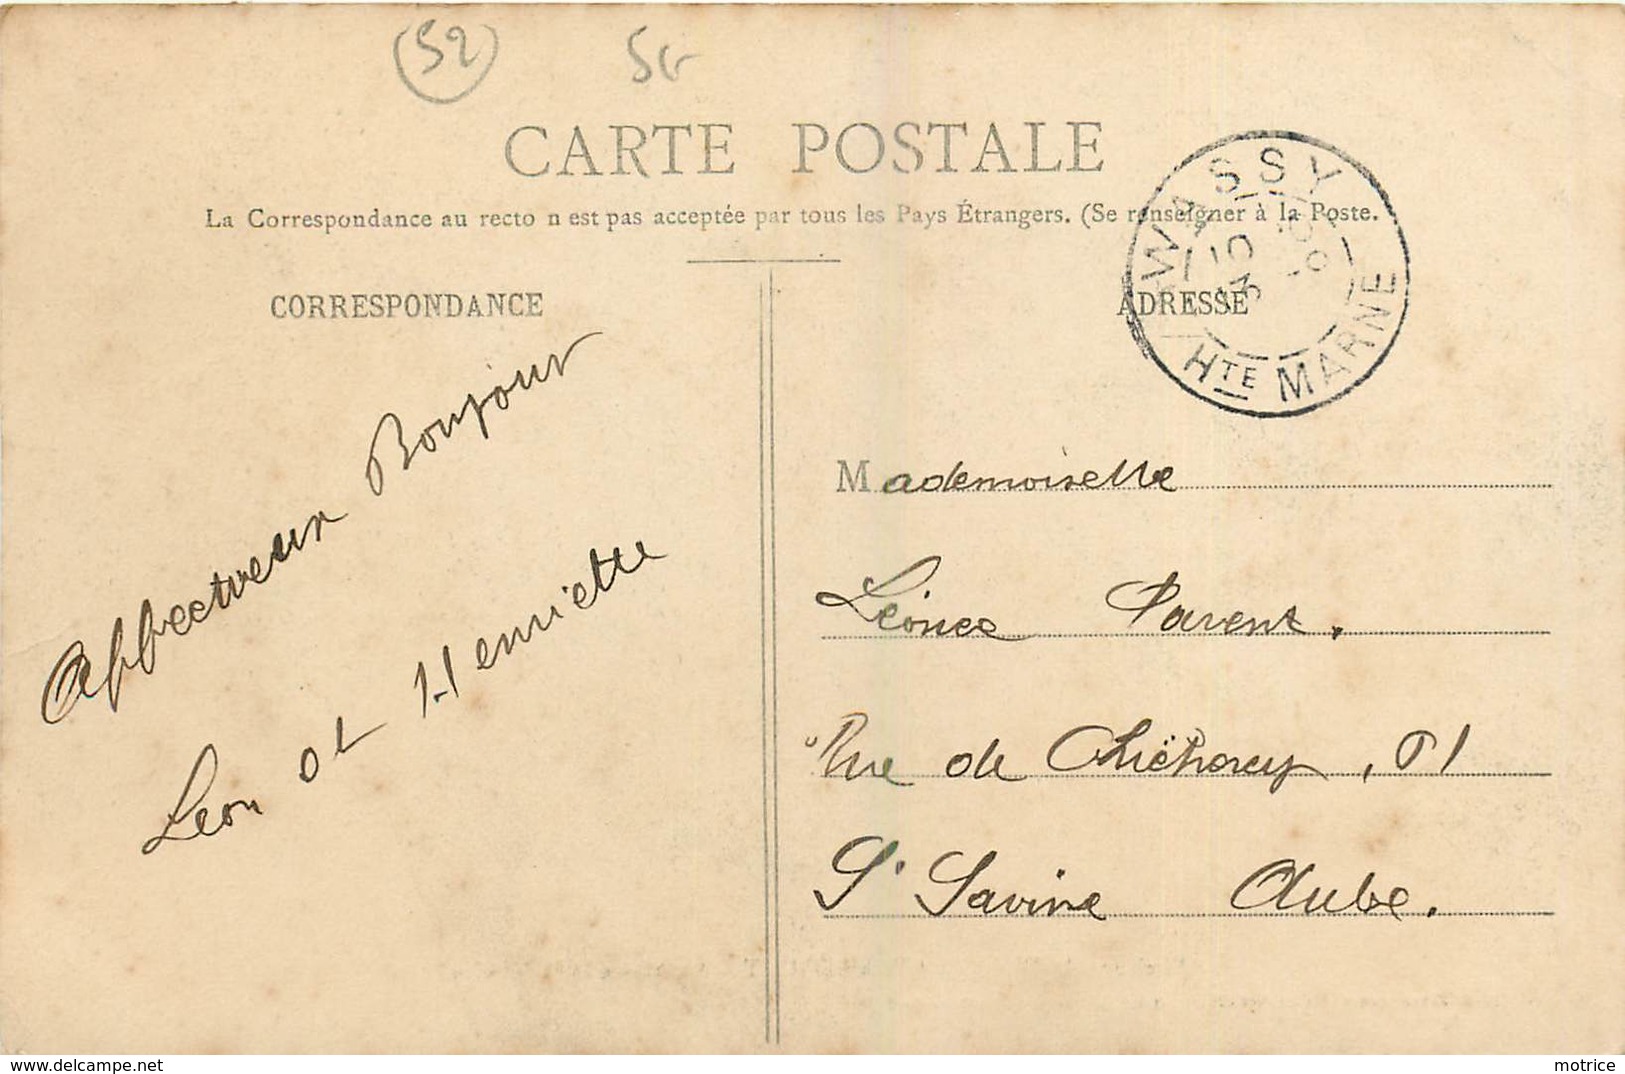 52
CARTE POSTALE
La Correspondance au recto n est pas acceptée par tous les Pays Étrangers. (Se renseigner à la Poste.
CORRESPONDANCE
Affectueux Bonjour
Léon et Henriette
ADRESSE
WASSY
HTE MARNE
Mademoiselle
Léonce Parent.
Rue de
St Savine Aube.
https://www.delcampe.net
motrice